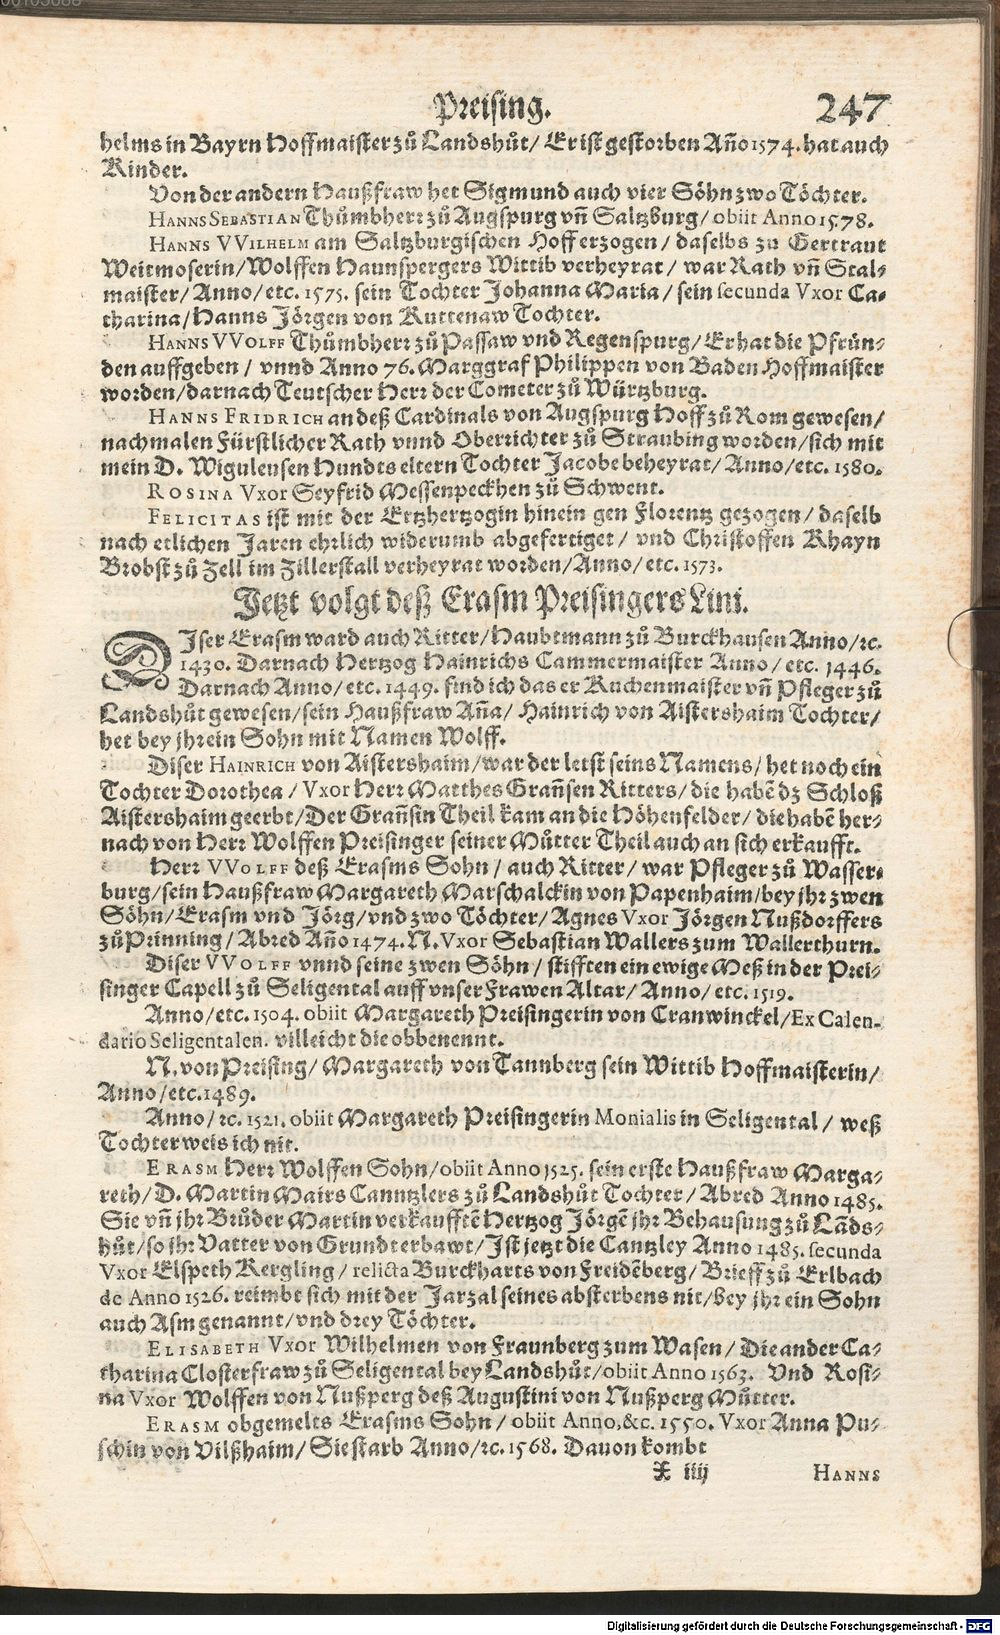 Preising. 247
helms in Bayrn Hoffmaister zů Landshůt/ Er ist gestorben Año 1574. hat auch
Kinder.
Von der andern Haußfraw het Sigmund auch vier Söhn zwo Töchter.
HANNS SEBASTIAN Thůmbherr zů Augspurg vñ Saltzburg/ obiit Anno 1578.
HANNS VVILHELM am Saltzburgischen Hoff erzogen/ daselbs zu Gertraut
Weitmoserin/ Wolffen Haunspergers Wittib verheyrat/ war Rath vñ Stal-
maister/ Anno/ etc. 1575. sein Tochter Johanna Maria/ sein secunda Vxor Ca-
tharina/ Hanns Jörgen von Kuttenaw Tochter.
HANNS VVOLFF Thůmbherr zů Passaw vnd Regenspurg/ Er hat die Pfrün-
den auffgeben/ vnnd Anno 76. Marggraf Philippen von Baden Hoffmaister
worden/ darnach Teutscher Herr der Cometer zů Würtzburg.
HANNS FRIDRICH an deß Cardinals von Augspurg Hoff zů Rom gewesen/
nachmalen Fürstlicher Rath vnnd Oberrichter zů Straubing worden/ sich mit
mein D. Wiguleusen Hundts eltern Tochter Jacobe beheyrat/ Anno/ etc. 1580.
ROSINA Vxor Seyfrid Messenpeckhen zů Schwent.
FELICITAS ist mit der Ertzhertzogin hinein gen Florentz gezogen/ daselb
nach etlichen Jaren ehrlich widerumb abgefertiget/ vnd Christoffen Khayn
Brobst zů Zell im Zillerstall verheyrat worden/ Anno/ etc. 1573.
Jetzt volgt deß Erasm Preisingers Lini.
DIser Erasm ward auch Ritter/ Haubtmann zů Burckhausen Anno/ ꝛc.
1430. Darnach Hertzog Hainrichs Cammermaister Anno/ etc. 1446.
Darnach Anno/ etc. 1449. find ich das er Kuchenmaister vñ Pfleger zů
Landshůt gewesen/ sein Haußfraw Aña/ Hainrich von Aistershaim Tochter/
het bey jhr ein Sohn mit Namen Wolff.
Diser HAINRICH von Aistershaim/ war der letst seins Namens/ het noch ein
Tochter Dorothea/ Vxor Herr Matthes Grañsen Ritters/ die habẽ dz Schloß
Aistershaim geerbt/ Der Grañsin Theil kam an die Höhenfelder/ die habẽ her-
nach von Herr Wolffen Preisinger seiner Můtter Theil auch an sich erkaufft.
Herr VVOLFF deß Erasms Sohn/ auch Ritter/ war Pfleger zů Wasser-
burg/ sein Haußfraw Margareth Marschalckin von Papenhaim/ bey jhr zwen
Söhn/ Erasm vnd Jörg/ vnd zwo Töchter/ Agnes Vxor Jörgen Nußdorffers
zů Prinning/ Abred Año 1474. N. Vxor Sebastian Wallers zum Wallerthurn.
Diser VVOLFF vnnd seine zwen Söhn/ stifften ein ewige Meß in der Prei-
singer Capell zů Seligental auff vnser Frawen Altar/ Anno/ etc. 1519.
Anno/ etc. 1504. obiit Margareth Preisingerin von Cranwinckel/ Ex Calen-
dario Seligentalen. villeicht die obbenennt.
N. von Preising/ Margareth von Tannberg sein Wittib Hoffmaisterin/
Anno/ etc. 1489.
Anno/ ꝛc. 1521. obiit Margareth Preisingerin Monialis in Seligental/ weß
Tochter weis ich nit.
ERASM Herr Wolffen Sohn/ obiit Anno 1525. sein erste Haußfraw Marga-
reth/ D. Martin Mairs Canntzlers zů Landshůt Tochter/ Abred Anno 1485.
Sie vñ jhr Brůder Martin verkaufftẽ Hertzog Jörgẽ jhr Behausung zů Lãds-
hůt/ so ihr Vatter von Grundt erbawt/ Ist jetzt die Cantzley Anno 1485. secunda
Vxor Elspeth Kergling/ relicta Burckharts von Freidẽberg/ Brieff zů Erlbach
de Anno 1526. reimbt sich mit der Jarzal seines absterbens nit/ bey jhr ein Sohn
auch Asm genannt/ vnd drey Töchter.
ELISABETH Vxor Wilhelmen von Fraunberg zum Wasen/ Die ander Ca-
tharina Closterfraw zů Seligental bey Landshůt/ obiit Anno 1563. Vnd Rosi-
na Vxor Wolffen von Nußperg deß Augustini von Nußperg Můtter.
ERASM obgemelts Erasms Sohn/ obiit Anno, &c. 1550. Vxor Anna Pu-
schin von Vilßhaim/ Sie starb Anno/ ꝛc. 1568. Dauon kombt
X iiij HANNS
Digitalisierung gefördert durch die Deutsche Forschungsgemeinschaft - DFG